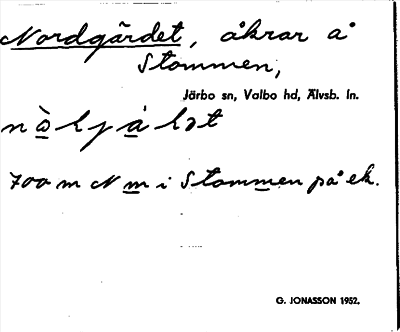 Nordgärdet, åkrar å
Stommen,
Järbo sn, Valbo hd, Älvsb. ln.
700 m N m i Stommen på ek.
G. JONASSON 1952.